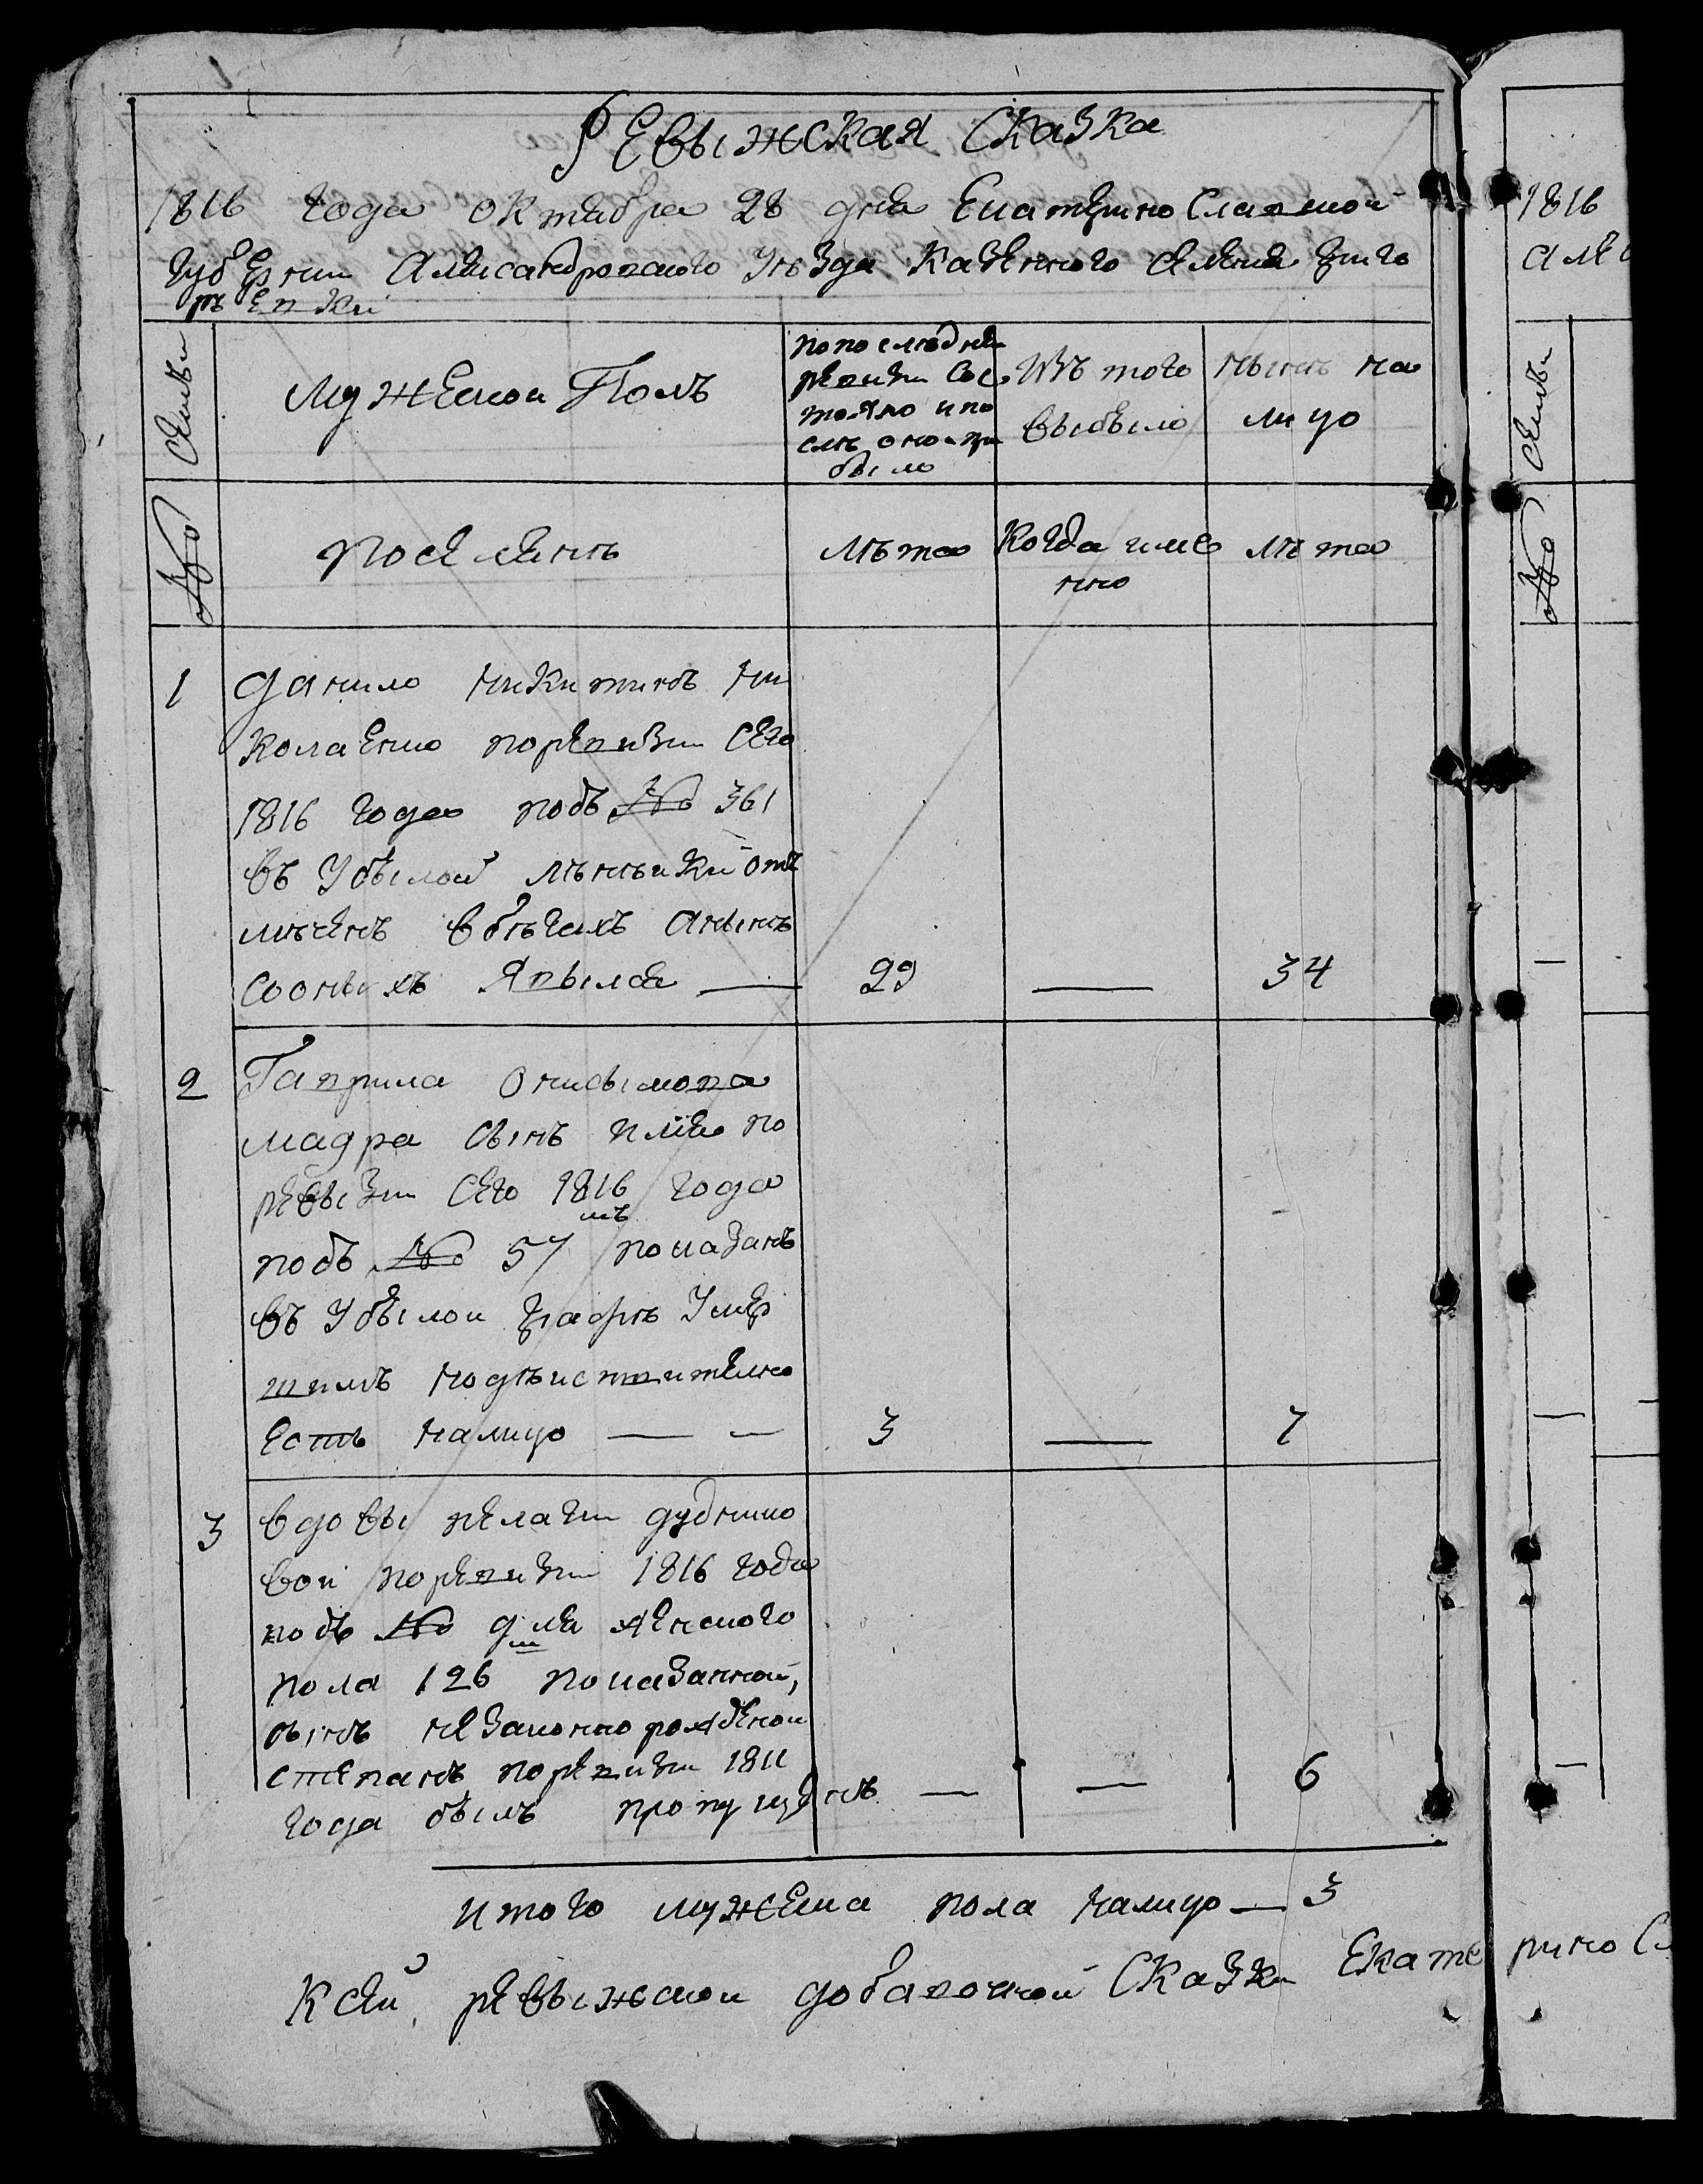 Ревыжская Сказка
1816 года октября 28 дня Екатерино Славской
Губернии Александровского Уезда Казенного Селения Григо
рьевки
Семьи
Мужескои Полъ
попоследней
ревизии Сос
тояло и по
сле оной при
было
Изъ того
выбыло
ныне на
лицо
№
поселяне
лѣта
Когда име
нно
лѣта
1
данило никитинъ ни
колаенко поревизии Сего
1816 года подъ № 361
въ Убылой
мѣченъ вбѣгахъ аныне
Сооныхъ Явился —
29
—
34
2
Гаврила Онисымова
мадра Сынъ илия по
ревызии Сего 1816 года
подъ № 57мъ показанъ
въ Убылои графѣ Умер
шимъ нодѣиствително
есть налицо — —
3
—
7
3
вдовы пелагеи дубнико
вои поревизии 1816 года
подъ № для женского
пола 126м показанной,
сынъ незаконнорожденои
степанъ поревизии 1811
года былъ пропущенъ
—
—
6
итого мужеска пола налицо — 3
Ксей ревыжскои добавочной Сказки Екате рино Сл
1816
Алек
Семьи
№